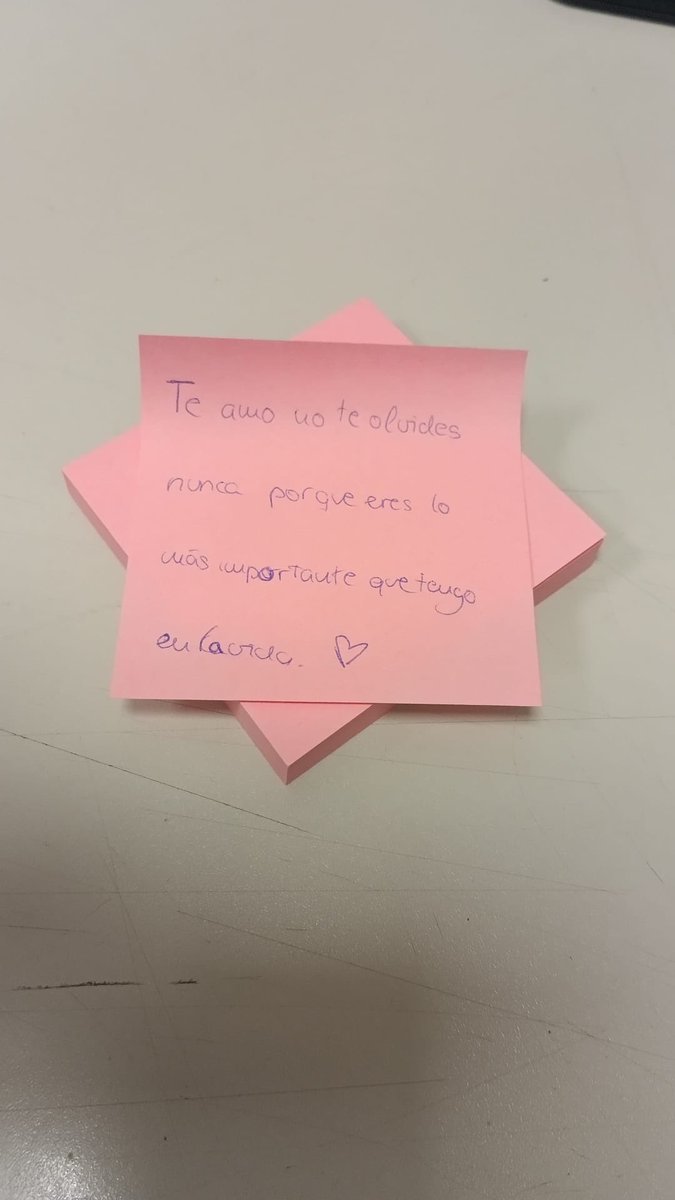 Te amo no te olvides
nunca porque eres lo
más importante que tengo
en la vida. ♡